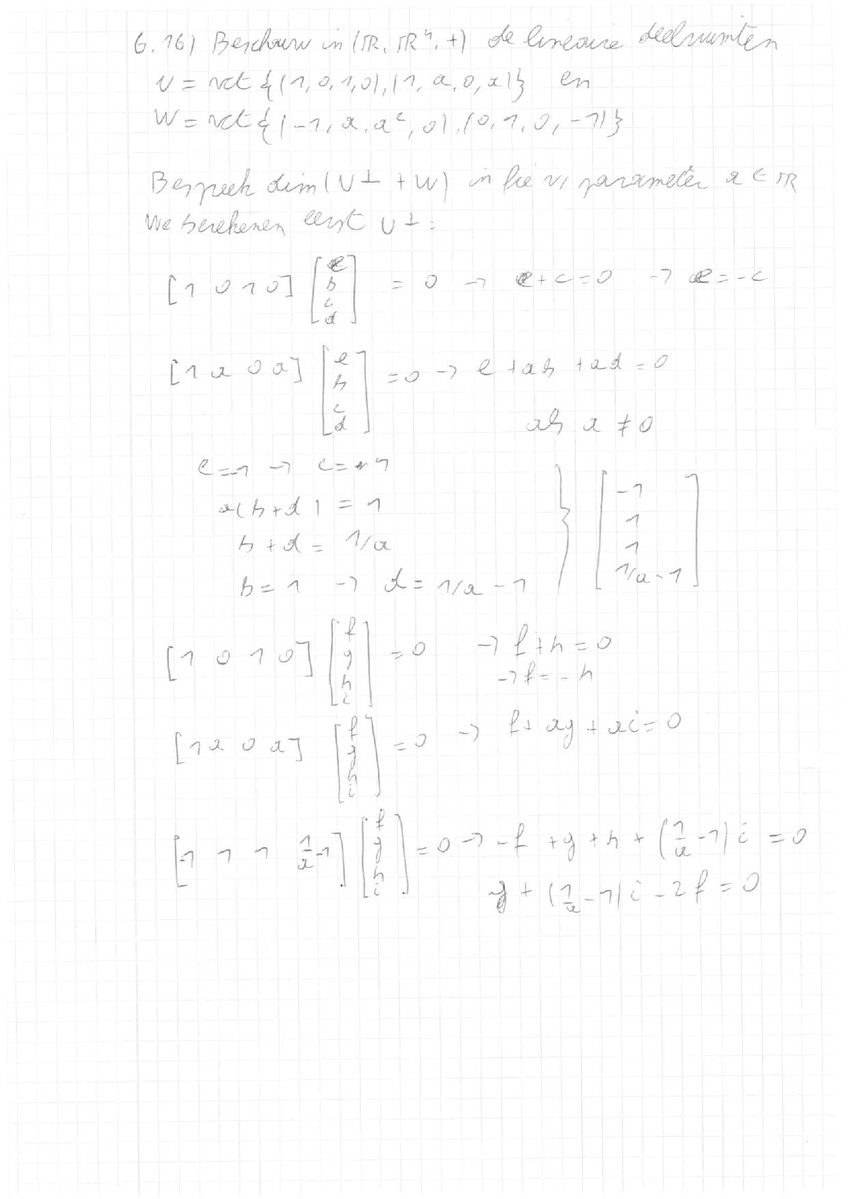 6.16) Beschouw in (ℝ, ℝ⁴, +) de lineaire deelruimten
U = vct {(1, 0, 1, 0), (1, a, 0, a)} en
W = vct {(-1, a, a², 0), (0, 1, 0, -1)}
Bespreek dim (U⊥ + W) in fie v/ parameter a ∈ ℝ
We berekenen eerst U⊥:
[1 0 1 0] [e b c d] = 0 → e + c = 0 → e = -c
[1 a 0 a] [e b c d] = 0 → e + ab + ad = 0
als a ≠ 0
e = -1 → c = 1
a(b + d) = 1
b + d = 1/a
b = 1 → d = 1/a - 1 } [-1 1 1 1/a-1]
[1 0 1 0] [f g h i] = 0 → f + h = 0
→ f = -h
[1 a 0 a] [f g h i] = 0 → f + ag + ai = 0
[-1 1 1 1/a-1] [f g h i] = 0 → -f + g + h + (1/a - 1) i = 0
g + (1/a - 1) i - 2f = 0